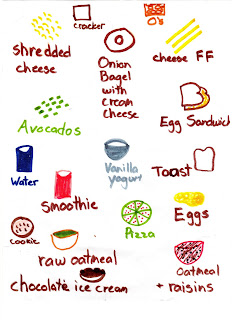 cracker
O's
shredded
cheese
Onion
Bagel
with
cream
cheese
cheese FF
Avocados
Egg Sandwich
Water
Vanilla
yogurt
Toast
Smoothie
Pizza
Eggs
cookie
raw oatmeal
Oatmeal
+ raisins
chocolate ice cream